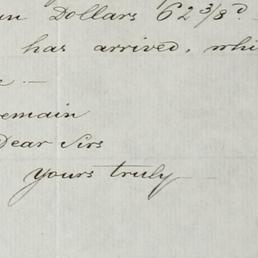 Dollars 62 3/8 d
has arrived,
remain
Dear Sirs
yours truly